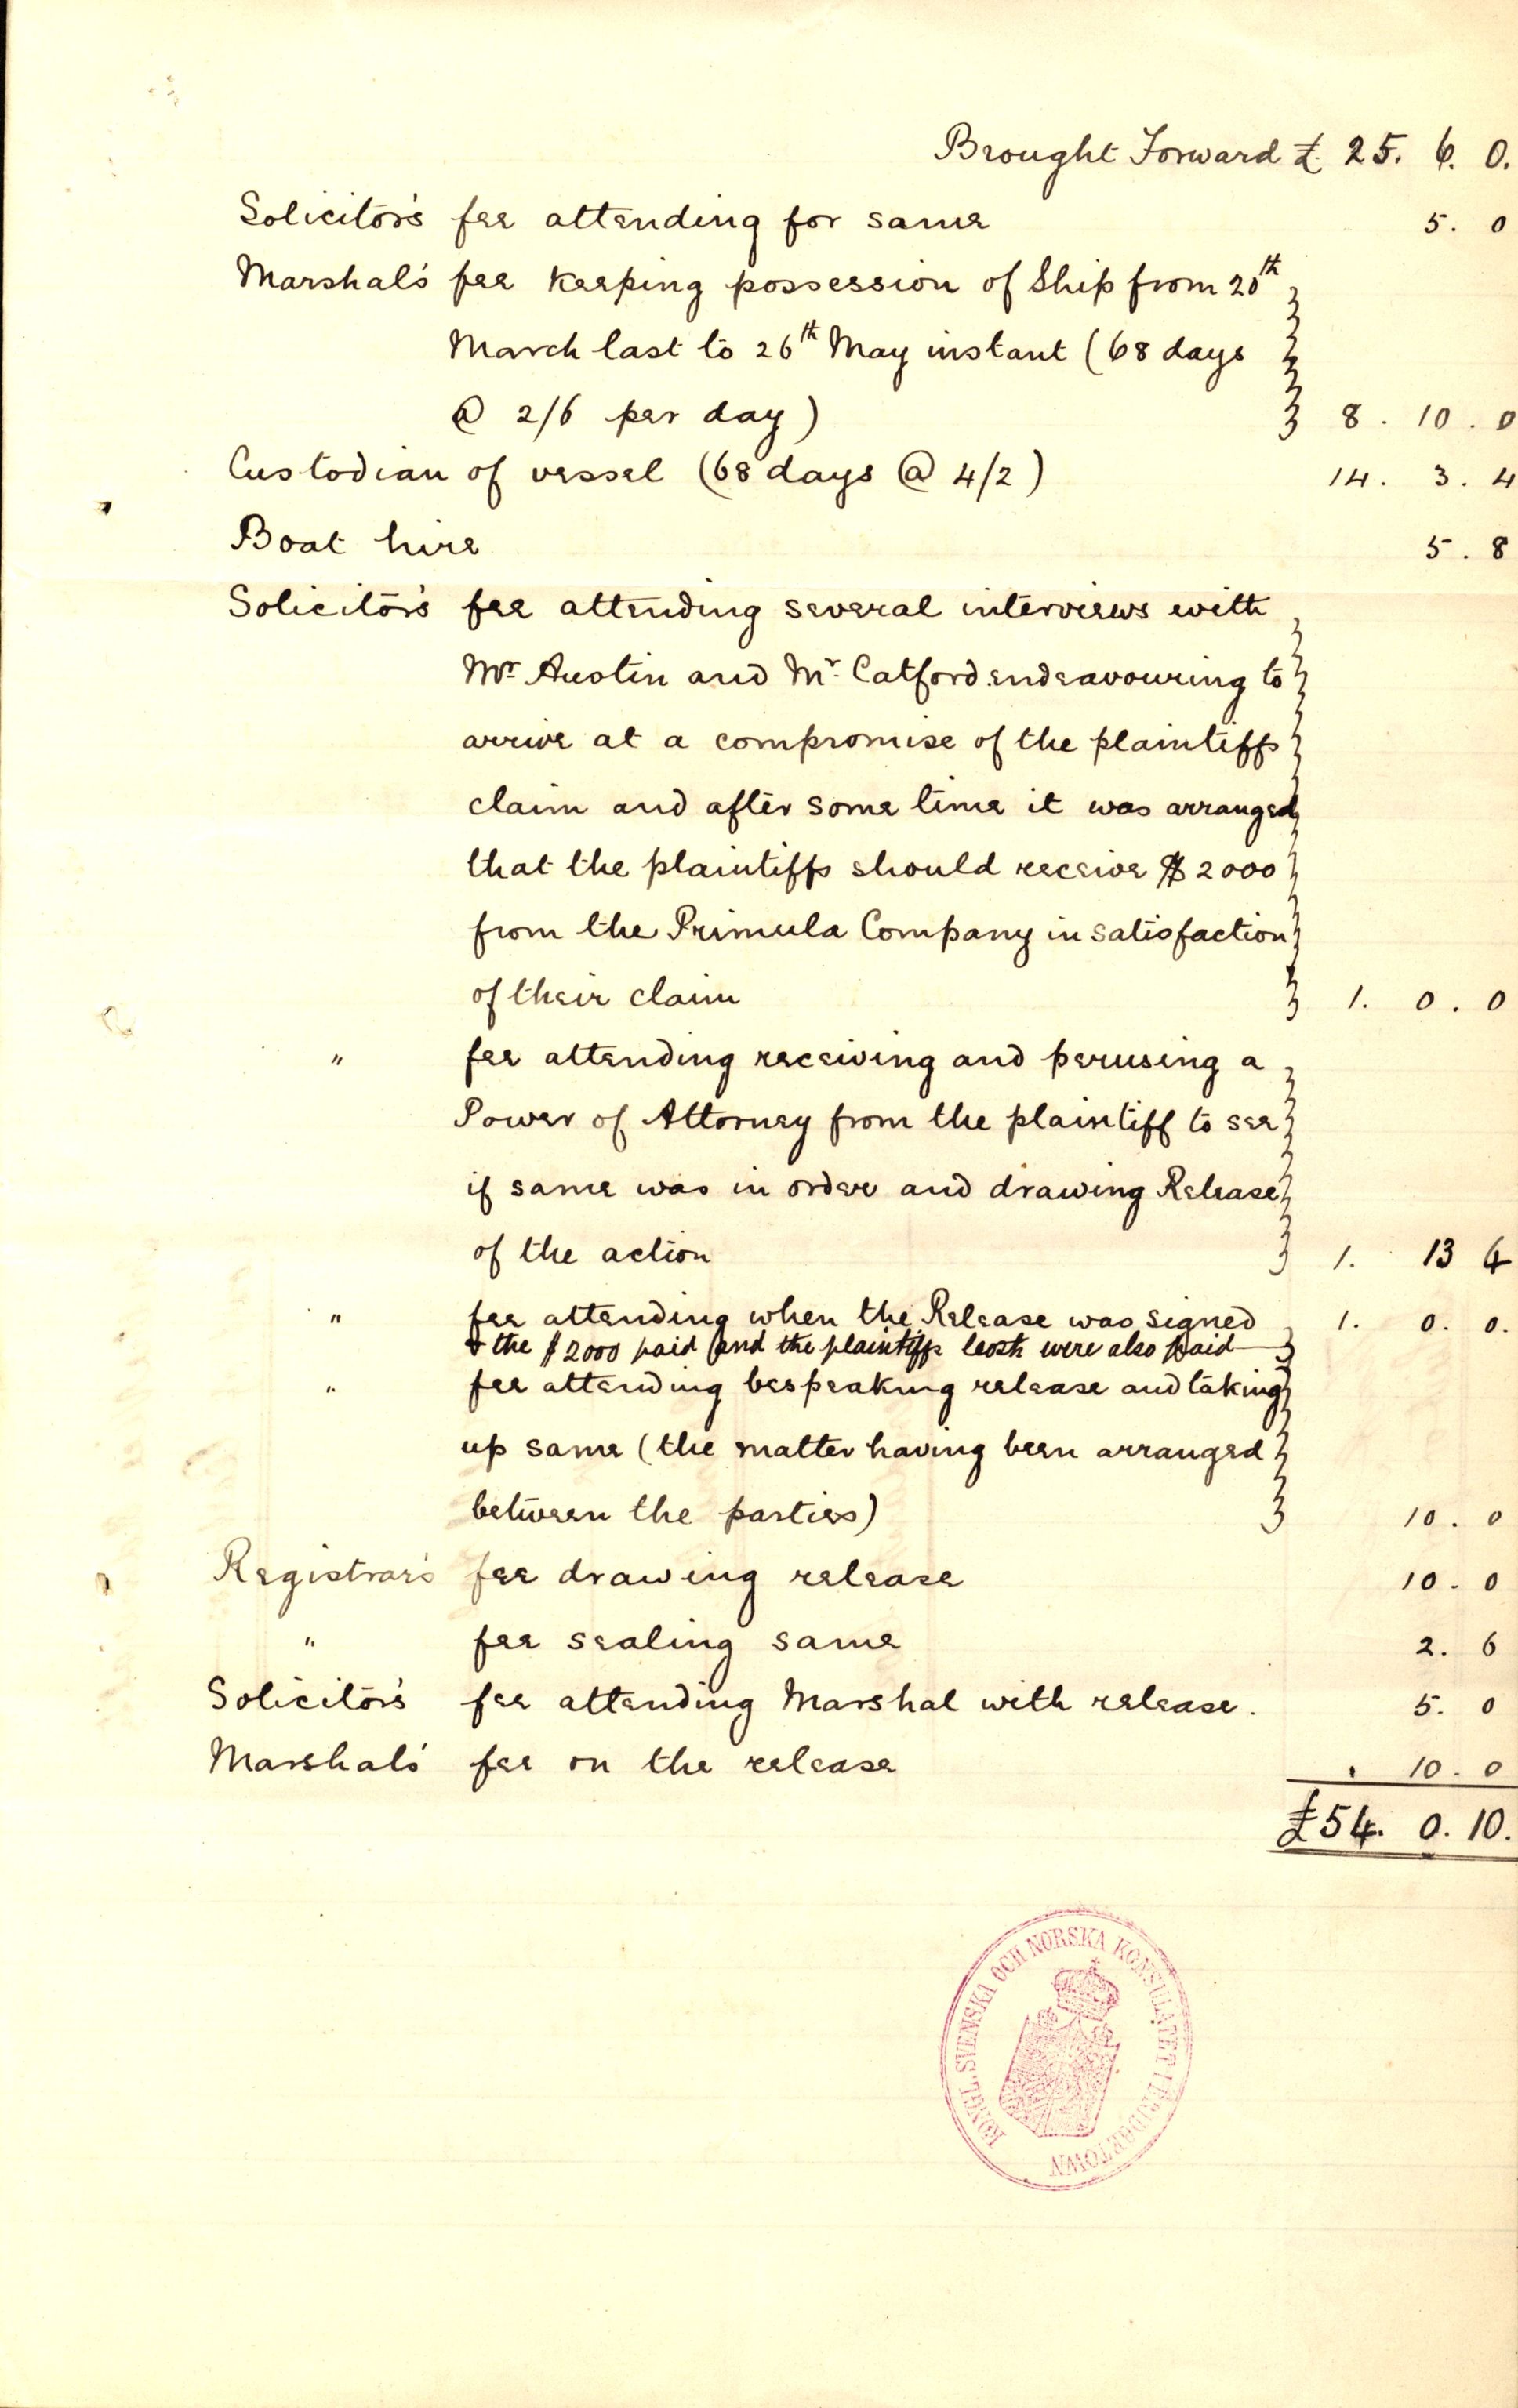 Brought Forward £ 25. 6. 0.
Solicitor's fee attending for same 5. 0
Marshal's fee keeping possession of Ship from 20th
March last to 26th May instant (68 days
@ 2/6 per day) 8. 10. 0
Custodian of vessel (68 days @ 4/2) 14. 3. 4
Boat hire 5. 8
Solicitor's fee attending several interviews with
Mr Austin and Mr. Catford endeavouring to
arrive at a compromise of the plaintiffs
claim and after some time it was arranged
that the plaintiffs should receive $2000
from the Primula Company in satisfaction
of their claim 1. 0. 0
" fee attending receiving and perusing a
Power of Attorney from the plaintiff to see
if same was in order and drawing Release
of the action 1. 13 4
" fee attending when the Release was signed 1. 0. 0.
& the $2000 paid and the plaintiffs costs were also paid
" fee attending bespeaking release and taking
up same (the matter having been arranged
between the parties) 10. 0
Registrar's fee drawing release 10. 0
" fee sealing same 2. 6
Solicitor's fee attending Marshal with release. 5. 0
Marshal's fee on the release 10. 0
£54. 0. 10.
KONGL. SVENSKA OCH NORSKA KONSULATET I BRIDGETOWN